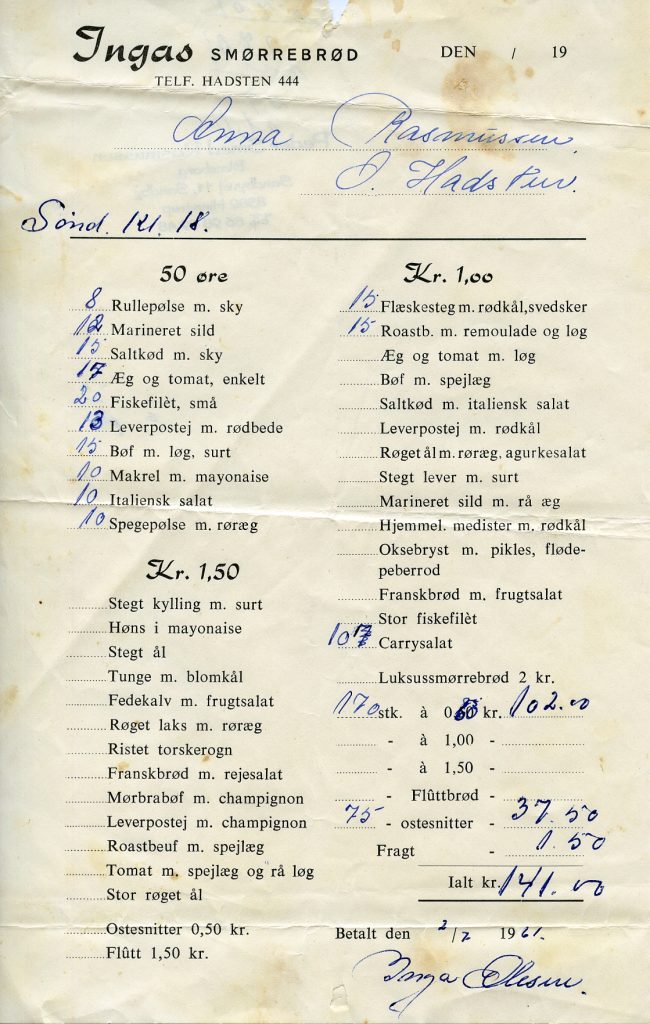 Ingas SMØRREBRØD
DEN / 19
TELF. HADSTEN 444
Anna Rasmussen.
O. Hadsten.
Sønd. Kl. 18.
50 øre
8 Rullepølse m. sky
12 Marineret sild
15 Saltkød m. sky
17 Æg og tomat, enkelt
20 Fiskefilèt, små
13 Leverpostej m. rødbede
15 Bøf m. løg, surt
10 Makrel m. mayonaise
10 Italiensk salat
10 Spegepølse m. røræg
Kr. 1,50
Stegt kylling m. surt
Høns i mayonaise
Stegt ål
Tunge m. blomkål
Fedekalv m. frugtsalat
Røget laks m. røræg
Ristet torskerogn
Franskbrød m. rejesalat
Mørbrabøf m. champignon
Leverpostej m. champignon
Roastbeuf m. spejlæg
Tomat m. spejlæg og rå løg
Stor røget ål
Ostesnitter 0,50 kr.
Flûtt 1,50 kr.
Kr. 1,00
15 Flæskesteg m. rødkål, svedsker
15 Roastb. m. remoulade og løg
Æg og tomat m. løg
Bøf m. spejlæg
Saltkød m. italiensk salat
Leverpostej m. rødkål
Røget ål m. røræg, agurkesalat
Stegt lever m. surt
Marineret sild m. rå æg
Hjemmel. medister m. rødkål
Oksebryst m. pikles, fløde-
peberrod
Franskbrød m. frugtsalat
Stor fiskefilèt
10 Carrysalat
Luksussmørrebrød 2 kr.
170 stk. à 0,60 kr. 102.00
- à 1,00 -
- à 1,50 -
- Flûttbrød -
75 - ostesnitter - 37.50
Fragt - 1.50
Ialt kr. 141.00
Betalt den 2/7 1961.
Inga Olesen.